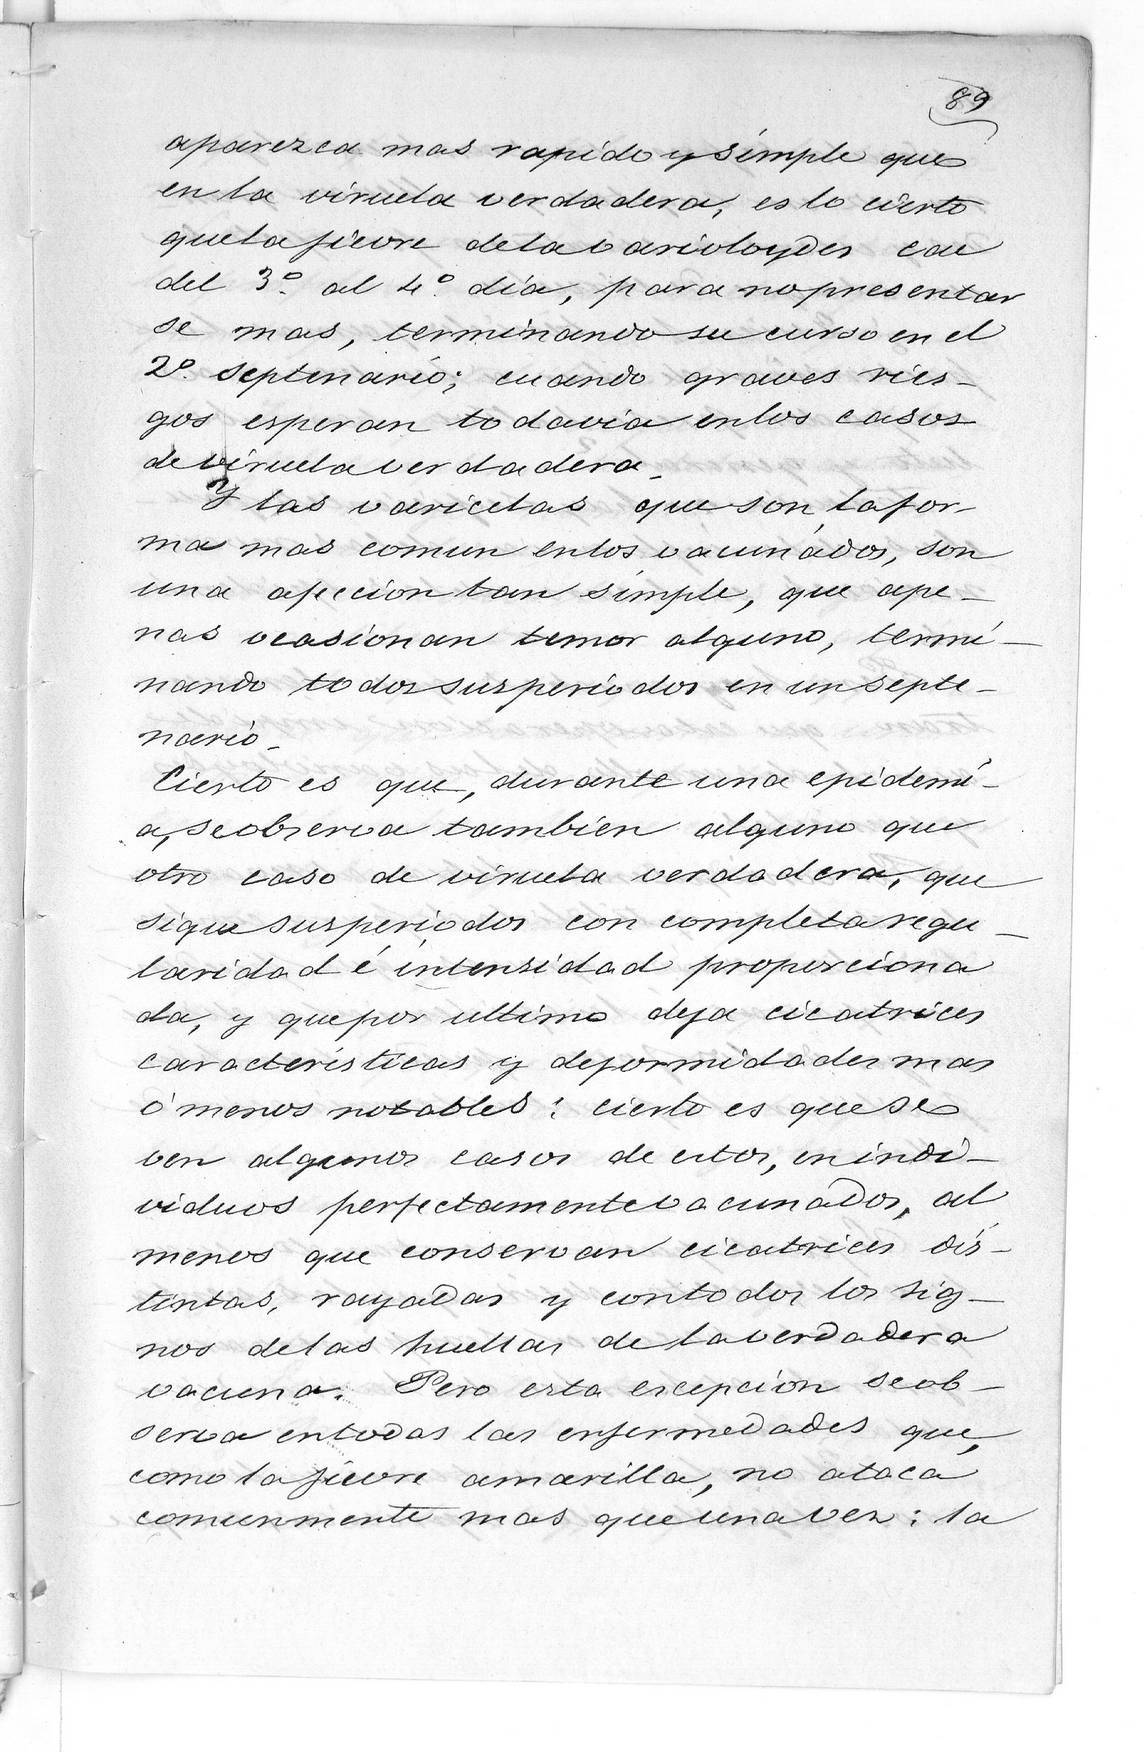 89
aparezca mas rapido y simple que
en la viruela verdadera, es lo cierto
que la fievre de la varioloydes cae
del 3º. al 4º. día, para no presentar
se mas, terminando su curso en el
2º. septenario; cuando graves ries-
gos esperan todavia en los casos
de viruela verdadera.
Y las varicelas que son la for-
ma mas comun en los vacunádos, son
una afeccion tan simple, que ape-
nas ocasionan temor alguno, termi-
nando todos sus periodos en un septe-
nario.
Cierto es que, durante una epidemi-
a, se observa tambien alguno que
otro caso de viruela verdadera, que
sigue sus periodos con completa regu-
laridad é intensidad proporciona
da, y que por ultimo deja cicatrices
caracteristicas y deformidades mas
ó menos notables: cierto es que se
ven algunos casos de estos, en indi-
viduos perfectamente vacunados, al
menos que conservan cicatrices dis-
tintas, rayadas y con todos los sig-
nos de las huellas de la verdadera
vacuna. Pero esta escepcion se ob-
serva en todas las enfermedades que,
como la fievre amarilla, no ataca
comunmente mas que una vez: la